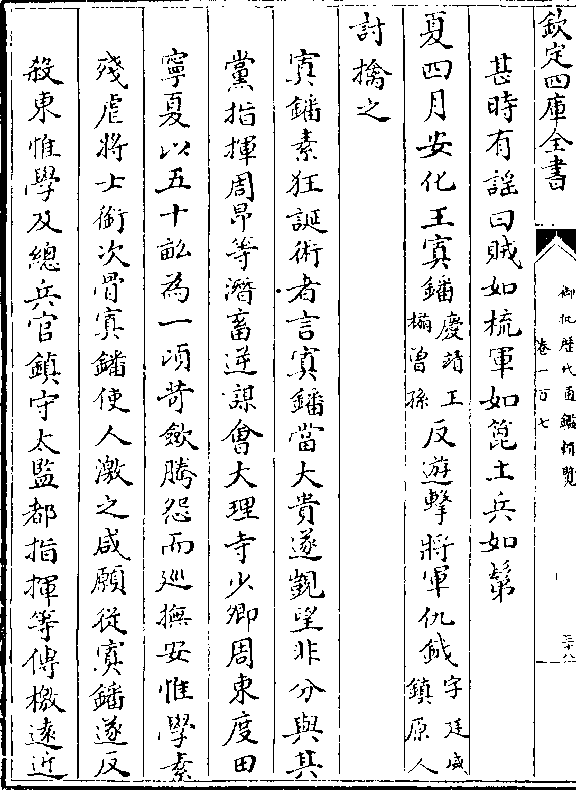 欽定四庫全書
御批歷代通鑑輯覽
卷一百七
三十八
甚時有謡曰賊如梳軍如篦土兵如鬀
夏四月安化王寘鐇慶靖王㮵曾孫反遊擊將軍仇鉞字廷威鎮原人
討擒之
寘鐇素狂誕術者言寘鐇當大貴遂觀望非分與其
黨指揮周昂等潛畜逆謀會大理寺少卿周東度田
寧夏以五十畝為一頃苛歛騰怨而巡撫安惟學素
殘虐將士銜次骨寘鐇使人激之咸願從寘鐇遂反
殺東惟學及總兵官鎮守太監都指揮等傳檄遠近